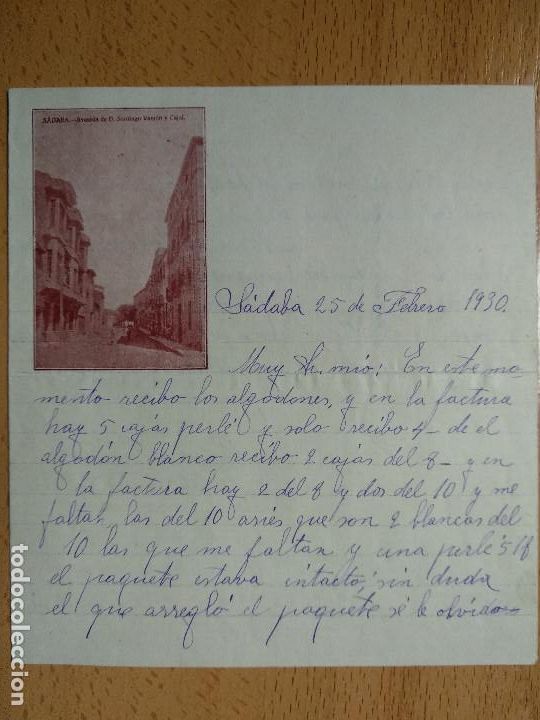 SÁDABA.—Avenida de D. Santiago Ramón y Cajal.
Sádaba 25 de Febrero 1930.
Muy Sr. mio: En este mo
mento recibo los algodones, y en la factura
hay 5 cajas perlé y solo recibo 4 — de el
algodón blanco recibo 2 cajas del 8 — y en
la factura hay 2 del 8 y dos del 10 y me
faltan las del 10 que son 2 blancas del
10 las que me faltan y una perlé
el paquete estava intacto sin duda
el que arregló el paquete se le olvido
todocoleccion.net